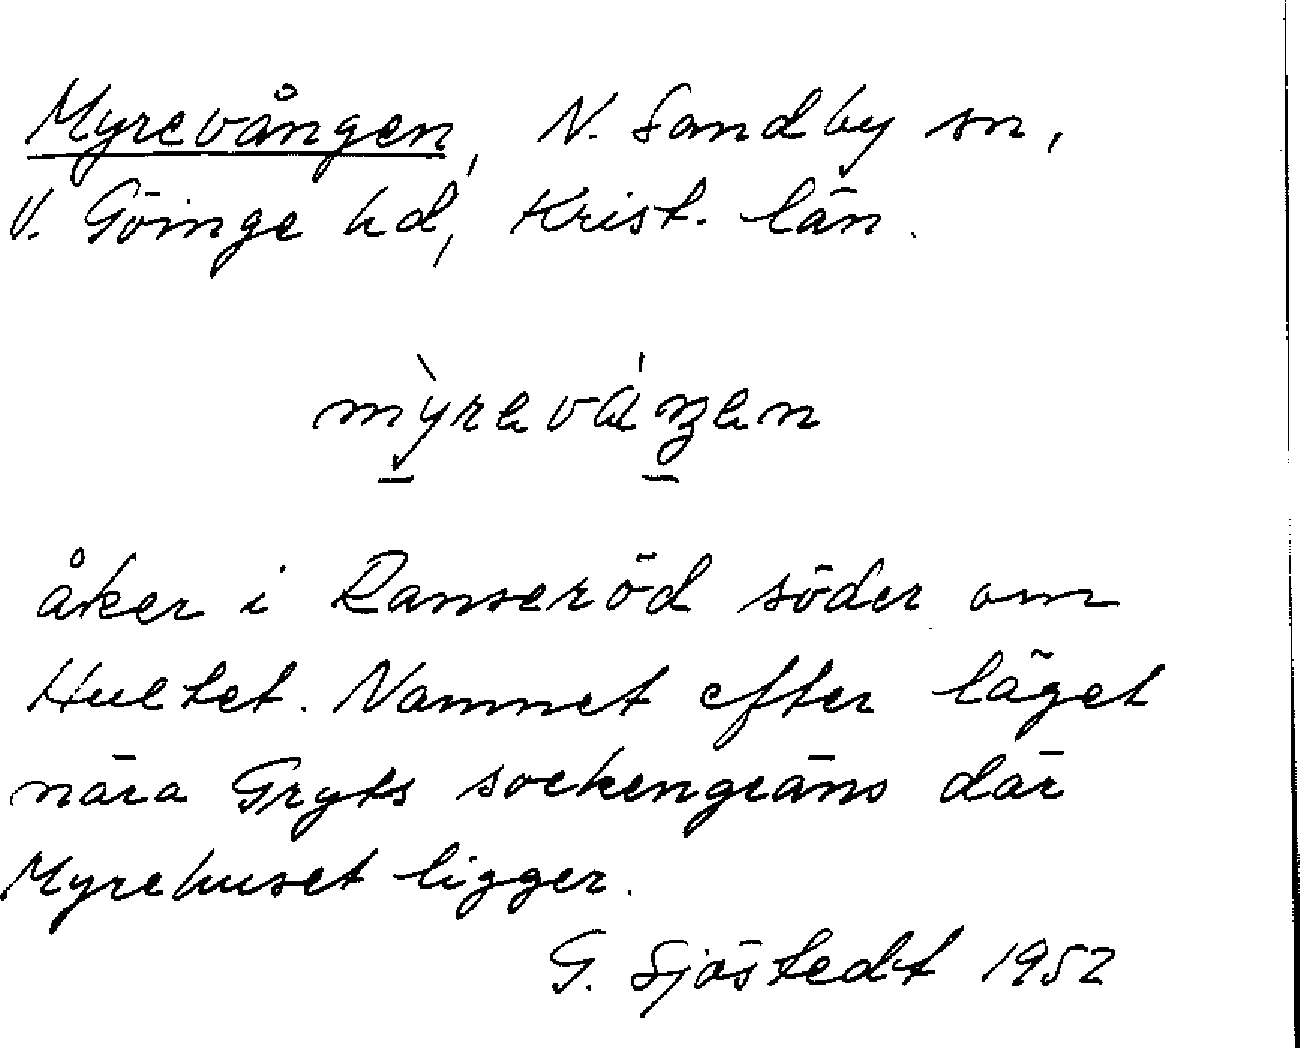 Myrevången, N. Sandby sn,
V. Göinge hd, Krist. län.
mỳreváŋen
åker i Ranseröd söder om
Hultet. Namnet efter läget
nära Gryts sockengräns där
Myrehuset ligger.
G. Sjöstedt 1952